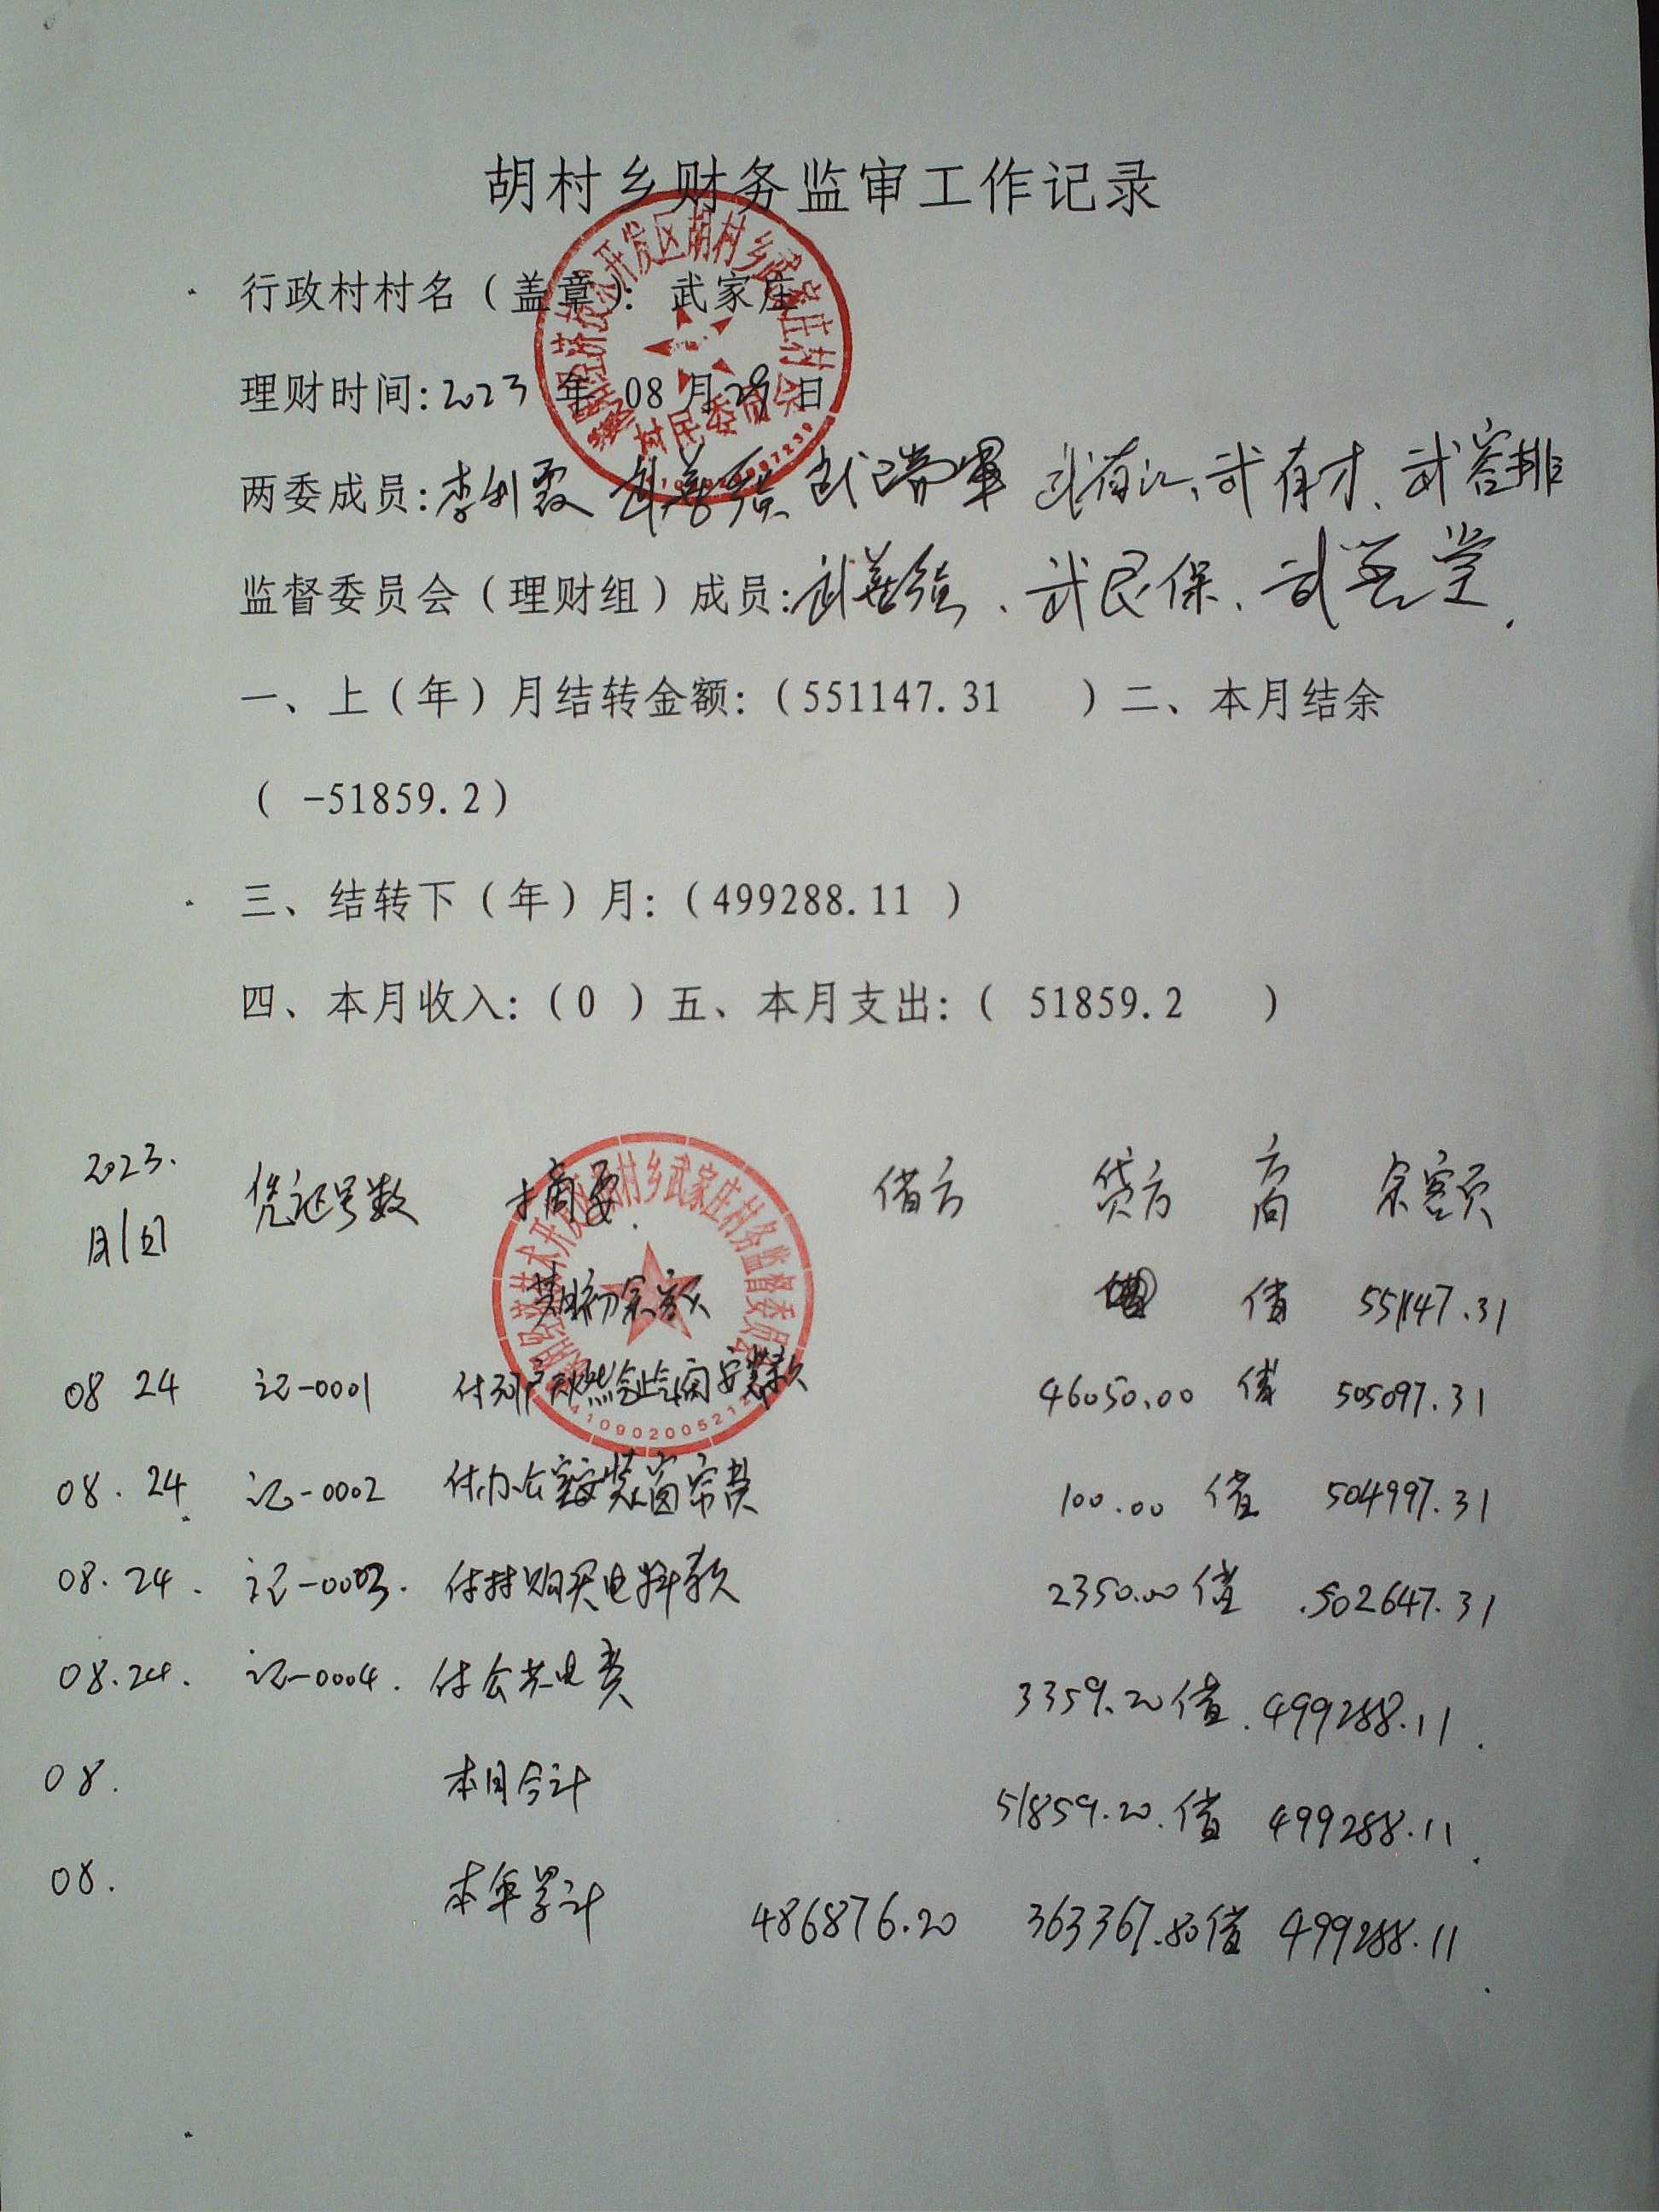 胡村乡财务监审工作记录
行政村村名（盖章）： 武家庄
理财时间：2023 年 08 月29日
两委成员：李利霞 武善强 武瑞军 武有江、武有才、武客排
监督委员会（理财组）成员：武善强、武民保、武善堂
一、上（年）月结转金额：（551147.31 ）二、本月结余
（ -51859.2）
三、结转下（年）月：（499288.11 ）
四、本月收入：（0 ）五、本月支出：（ 51859.2 ）
2023.
月 日 凭证号数 摘要 借方 贷方 方向 余额
期初余额 借 551147.31
08 24 记-0001 付 燃 安装款 46050.00 借 505097.31
08.24 记-0002 付办公室安装窗帘费 100.00 借 504997.31
08.24. 记-0003. 付村购买电料款 2350.00 借 502647.31
08.24. 记-0004. 付公共电费 3359.20 借 499288.11
08. 本月合计 51859.20 借 499288.11
08. 本年累计 486876.20 363367.80 借 499288.11
胡村乡武家庄村务监督委员会
410902005212